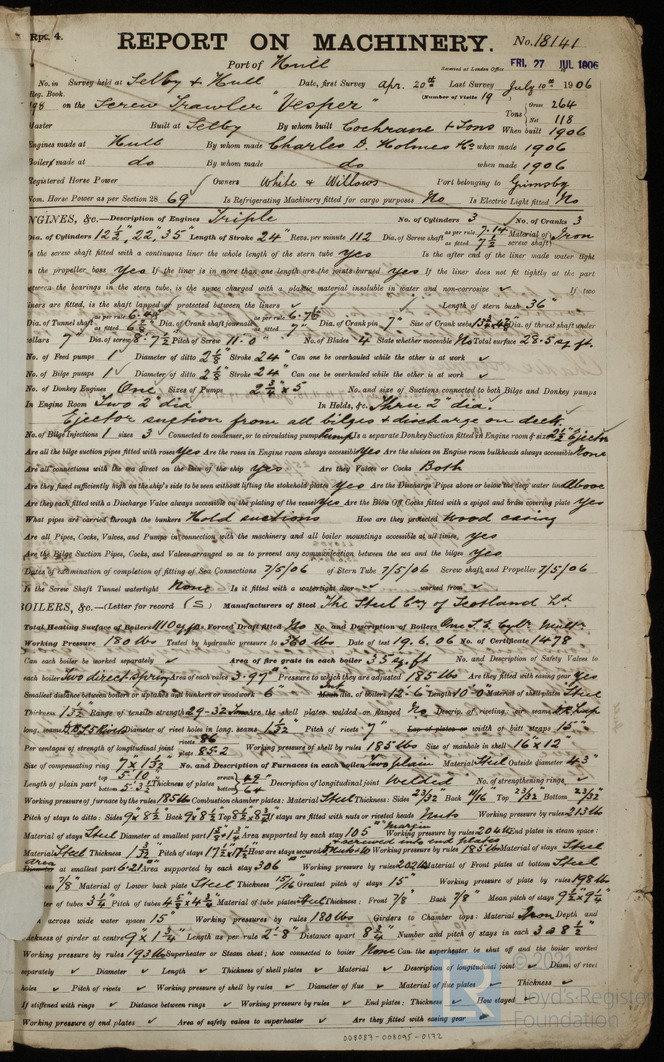 Rpt. 4.
REPORT ON MACHINERY. No. 18141
Port of Hull Received at London Office FRI. 27 JUL 1906
No. in Survey held at Selby & Hull Date, first Survey Apr. 20th Last Survey July 10th 1906
Reg. Book. (Number of Visits 19)
198 on the Screw Trawler "Vesper" Tons Gross 264 Net 118
Master Built at Selby By whom built Cochrane & Sons When built 1906
Engines made at Hull By whom made Charles D. Holmes when made 1906
Boilers made at do By whom made do when made 1906
Registered Horse Power Owners White & Willows Port belonging to Grimsby
Nom. Horse Power as per Section 28 69 Is Refrigerating Machinery fitted for cargo purposes No Is Electric Light fitted No
ENGINES, &c.—Description of Engines Triple No. of Cylinders 3 No. of Cranks 3
Dia. of Cylinders 12½", 22", 35" Length of Stroke 24" Revs. per minute 112 Dia. of Screw shaft as per rule 7.14 as fitted 7½ Material of screw shaft Iron
Is the screw shaft fitted with a continuous liner the whole length of the stern tube yes Is the after end of the liner made water tight
in the propeller boss yes If the liner is in more than one length are the joints burned yes If the liner does not fit tightly at the part
between the bearings in the stern tube, is the space charged with a plastic material insoluble in water and non-corrosive ✓ If two
liners are fitted, is the shaft lapped or protected between the liners ✓ Length of stern bush 36"
Dia. of Tunnel shaft as per rule as fitted Dia. of Crank shaft journals as per rule as fitted 7" Dia. of Crank pin 7" Size of Crank webs Dia. of thrust shaft under
collars 7" Dia. of screw 8-7½ Pitch of Screw 11-0" No. of Blades 4 State whether moveable No Total surface 28.5 sq. ft.
No. of Feed pumps 1 Diameter of ditto 2⅛ Stroke 24" Can one be overhauled while the other is at work ✓
No. of Bilge pumps 1 Diameter of ditto 2⅛ Stroke 24" Can one be overhauled while the other is at work ✓
No. of Donkey Engines One Sizes of Pumps 2¾" x 5" No. and size of Suctions connected to both Bilge and Donkey pumps
In Engine Room Two 2" dia In Holds, &c. Three 2" dia.
Ejector suction from all bilges & discharge on deck.
No. of Bilge Injections 1 sizes 3 Connected to condenser, or to circulating pump pump Is a separate Donkey Suction fitted in Engine room & size 2½ Ejector
Are all the bilge suction pipes fitted with roses yes Are the roses in Engine room always accessible yes Are the sluices on Engine room bulkheads always accessible None
Are all connections with the sea direct on the skin of the ship yes Are they Valves or Cocks Both
Are they fixed sufficiently high on the ship's side to be seen without lifting the stokehold plates yes Are the Discharge Pipes above or below the deep water line Above
Are they each fitted with a Discharge Valve always accessible on the plating of the vessel yes Are the Blow Off Cocks fitted with a spigot and brass covering plate yes
What pipes are carried through the bunkers Hold suctions How are they protected Wood casing
Are all Pipes, Cocks, Valves, and Pumps in connection with the machinery and all boiler mountings accessible at all times yes
Are the Bilge Suction Pipes, Cocks, and Valves arranged so as to prevent any communication between the sea and the bilges yes
Dates of examination of completion of fitting of Sea Connections 7/5/06 of Stern Tube 7/5/06 Screw shaft and Propeller 7/5/06
Is the Screw Shaft Tunnel watertight None Is it fitted with a watertight door ✓ worked from ✓
BOILERS, &c.—(Letter for record (S)) Manufacturers of Steel The Steel Coy of Scotland Ld
Total Heating Surface of Boilers 1110 sq ft Is Forced Draft fitted No No. and Description of Boilers One S.E. Cylr. Multr.
Working Pressure 180 lbs Tested by hydraulic pressure to 360 lbs Date of test 19.6.06 No. of Certificate 1478
Can each boiler be worked separately ✓ Area of fire grate in each boiler 35 sq. ft No. and Description of Safety Valves to
each boiler Two direct spring Area of each valve 3.97" Pressure to which they are adjusted 185 lbs Are they fitted with easing gear yes
Smallest distance between boilers or uptakes and bunkers or woodwork 6" Int dia. of boilers 12-6 Length 10-0 Material of shell plates Steel
Thickness Range of tensile strength 29-32 Tons Are the shell plates welded or flanged No Descrip. of riveting: cir. seams D.R. Lap
long. seams Diameter of rivet holes in long. seams Pitch of rivets 7" width of butt straps 15"
Per centages of strength of longitudinal joint rivets 86 plate 85.2 Working pressure of shell by rules 185 lbs Size of manhole in shell 16 x 12
Size of compensating ring No. and Description of Furnaces in each boiler Two plain Material Steel Outside diameter 43"
Length of plain part top 5-10 bottom Thickness of plates crown bottom Description of longitudinal joint Welded No. of strengthening rings ✓
Working pressure of furnace by the rules 185 lbs Combustion chamber plates: Material Steel Thickness: Sides 23/32 Back 11/16 Top 23/32 Bottom 23/32
Pitch of stays to ditto: Sides 9 x 8½ Back 9 x 8½ Top If stays are fitted with nuts or riveted heads Nuts Working pressure by rules 213 lbs
Material of stays Steel Diameter at smallest part Area supported by each stay 105" margin Working pressure by rules 204 lbs End plates in steam space:
Material Steel Thickness Pitch of stays How are stays secured Working pressure by rules 185 lbs Material of stays Steel
area at smallest part 6.21 Area supported by each stay 306" Working pressure by rules 202 lbs Material of Front plates at bottom Steel
7/8 Material of Lower back plate Steel Thickness 15/16 Greatest pitch of stays 15" Working pressure of plate by rules 198 lbs
of tubes 3¼ Pitch of tubes Material of tube plates Steel Thickness: Front 7/8 Back 7/8 Mean pitch of stays
across wide water spaces 15" Working pressures by rules 180 lbs Girders to Chamber tops: Material Iron Depth and
thickness of girder at centre 9" x 1¾ Length as per rule 2'-8" Distance apart 8¾ Number and pitch of stays in each 3 a 8½"
Working pressure by rules 193 lbs Superheater or Steam chest; how connected to boiler None Can the superheater be shut off and the boiler worked
separately ✓ Diameter ✓ Length ✓ Thickness of shell plates ✓ Material ✓ Description of longitudinal joint ✓ Diam. of rivet
holes ✓ Pitch of rivets ✓ Working pressure of shell by rules ✓ Diameter of flue ✓ Material of flue plates ✓ Thickness ✓
If stiffened with rings ✓ Distance between rings ✓ Working pressure by rules ✓ End plates: Thickness ✓ How stayed
Working pressure of end plates ✓ Area of safety valves to superheater ✓ Are they fitted with easing gear ✓
© 2021
Lloyd's Register
Foundation
008087-008095-0172